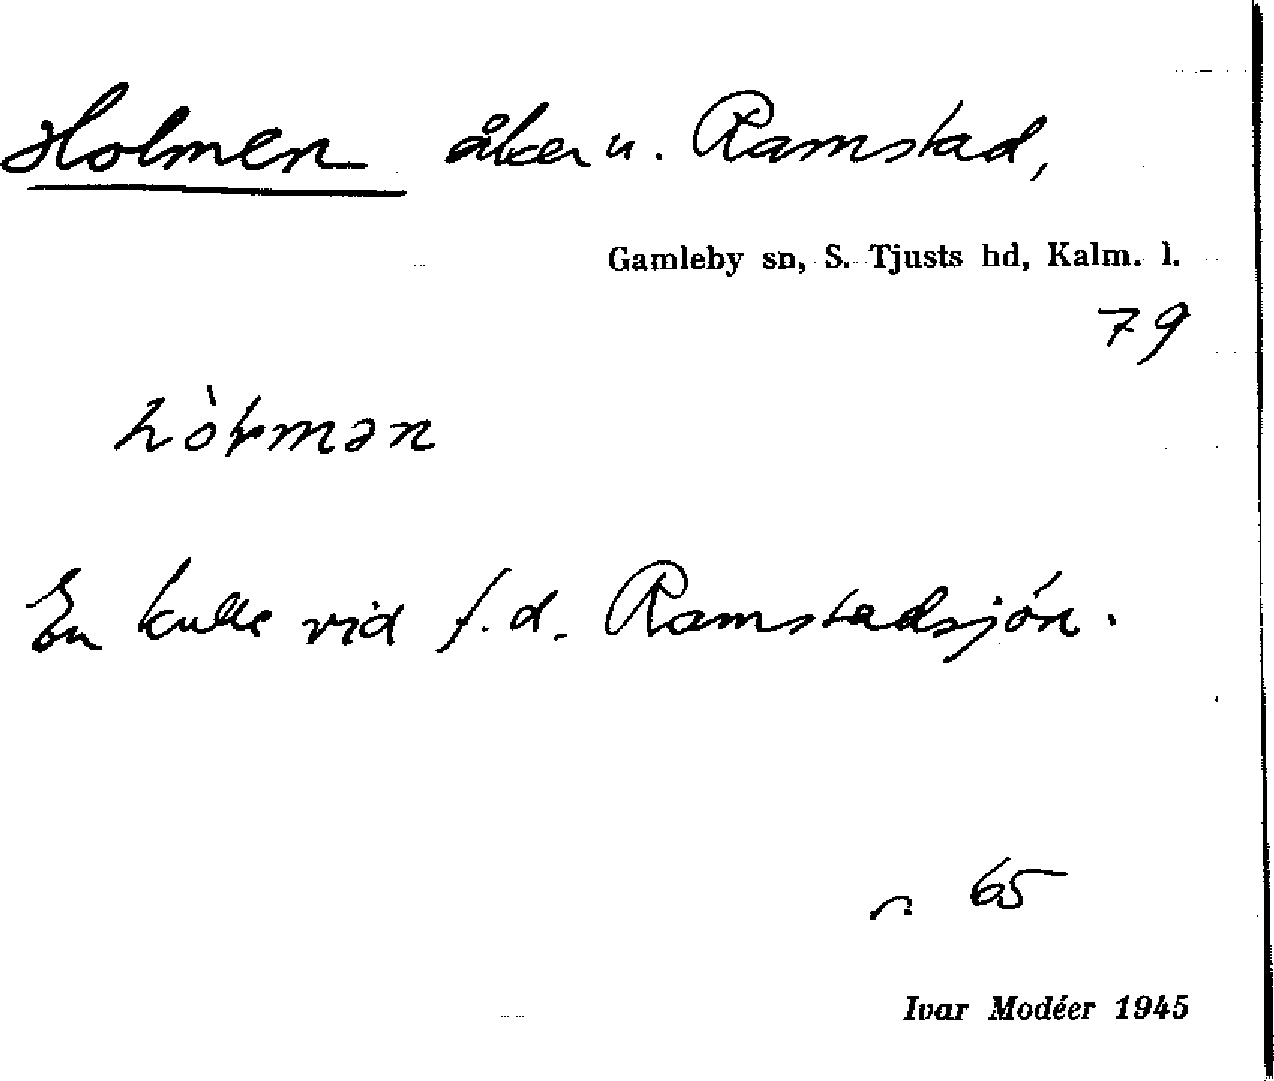 Holmen åker u. Ramstad,
Gamleby sn, S. Tjusts hd, Kalm. l.
79
hòƚmən
En kulle vid f.d. Ramstadsjön.
65
Ivar Modéer 1945